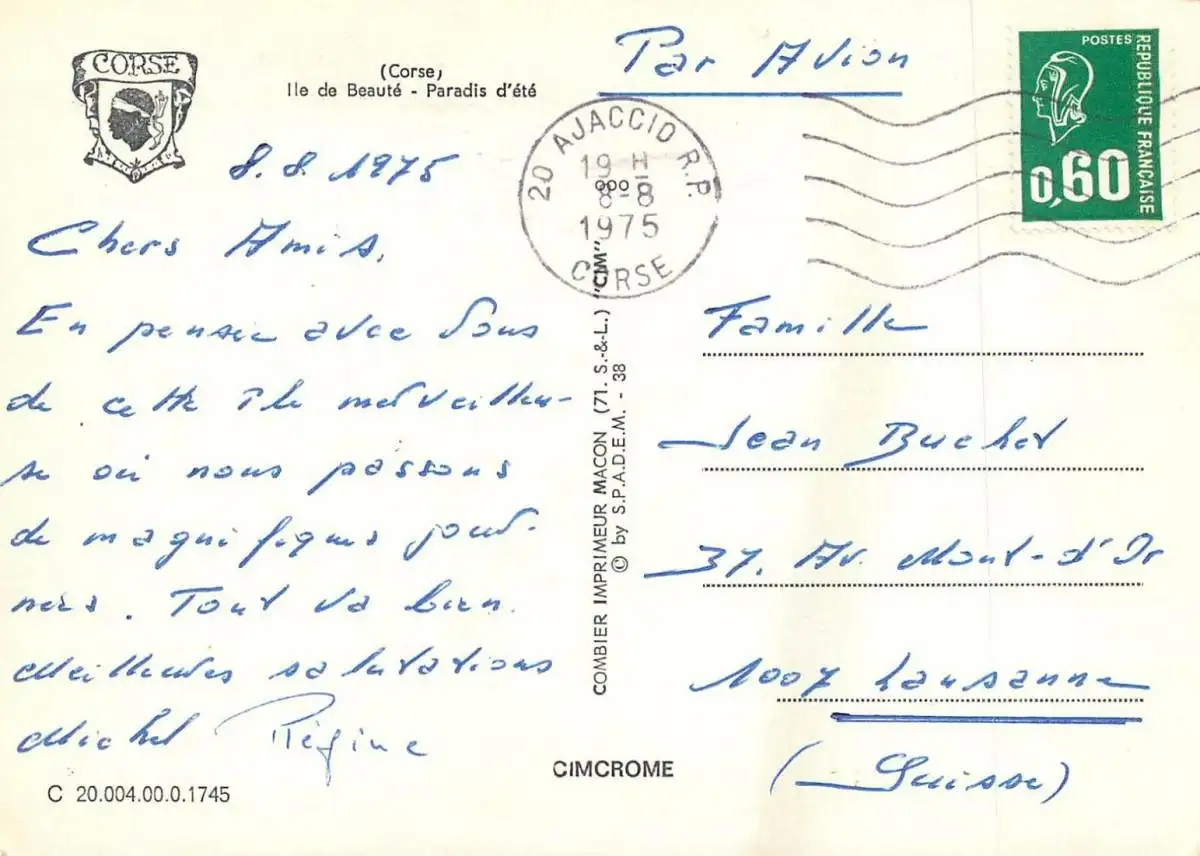 CORSE
(Corse)
Ile de Beauté - Paradis d'été
8.8.1975
Chers Amis,
En pensée avec Vous
de cette île merveilleu-
se où nous passons
de magnifiques jour-
nées. Tout va bien.
Meilleures salutations
Michel Régine
C 20.004.00.0.1745
COMBIER IMPRIMEUR MACON (71. S.-&-L.) "CIM"
© by S.P.A.D.E.M. - 38
CIMCROME
Par Avion
20 AJACCIO R.P.
19 H
8-8
1975
CORSE
POSTES
REPUBLIQUE FRANÇAISE
0,60
Famille
Jean Buchet
37, Av. Mont-d'Or
1007 Lausanne
(Suisse)